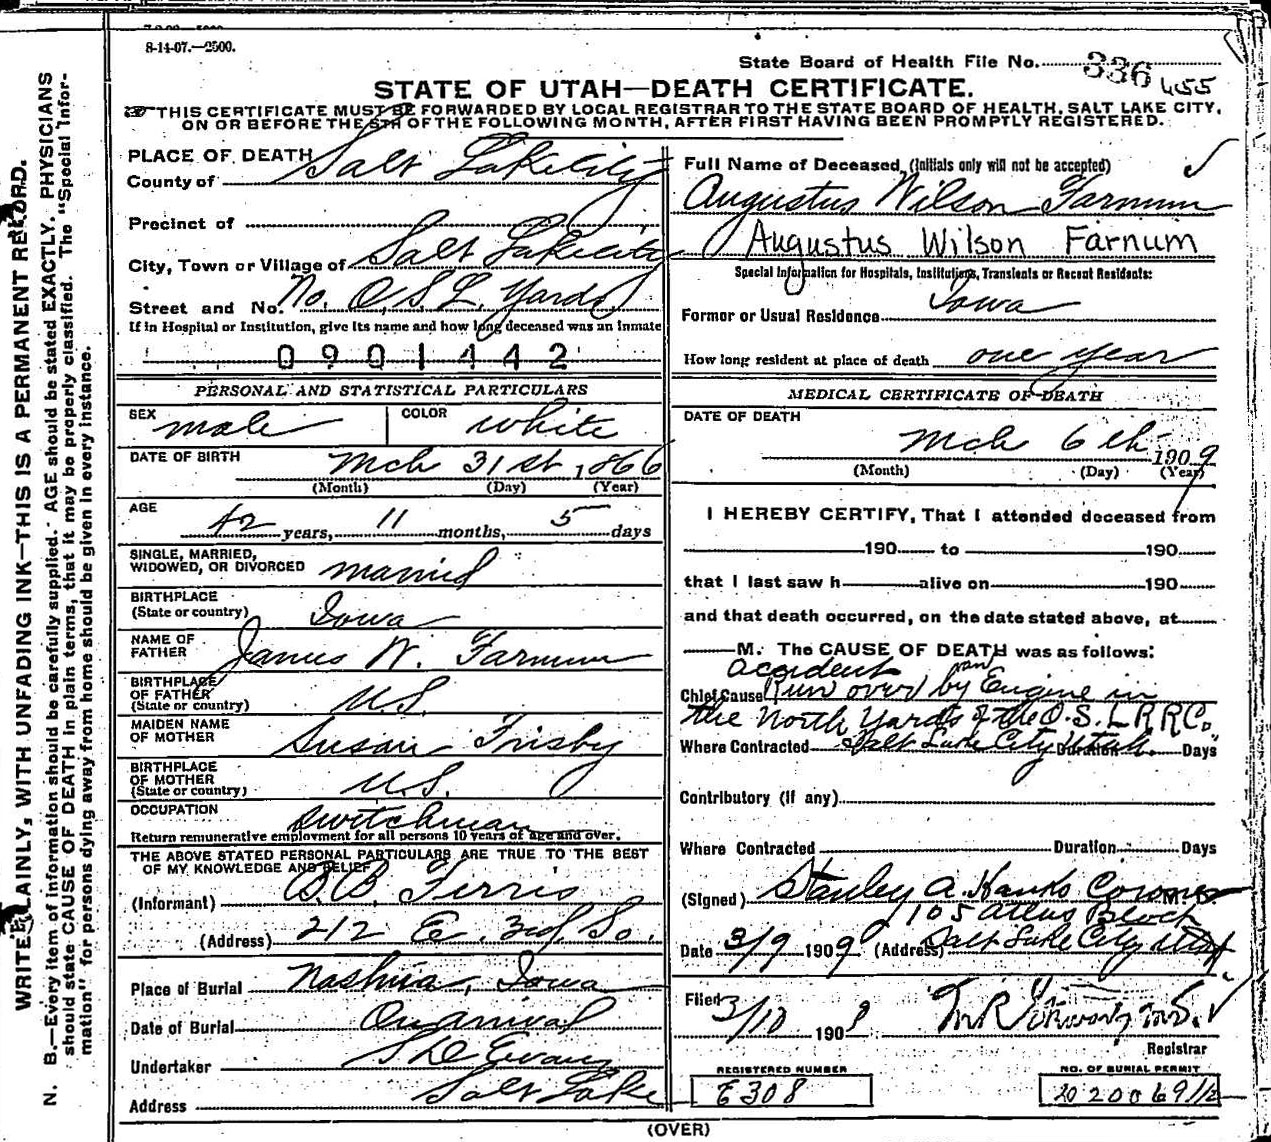 8-14-07.—2500.
State Board of Health File No. 336 455
STATE OF UTAH—DEATH CERTIFICATE.
THIS CERTIFICATE MUST BE FORWARDED BY LOCAL REGISTRAR TO THE STATE BOARD OF HEALTH, SALT LAKE CITY,
ON OR BEFORE THE 5TH OF THE FOLLOWING MONTH, AFTER FIRST HAVING BEEN PROMPTLY REGISTERED.
WRITE PLAINLY, WITH UNFADING INK—THIS IS A PERMANENT RECORD.
N. B.—Every item of information should be carefully supplied. AGE should be stated EXACTLY. PHYSICIANS
should state CAUSE OF DEATH in plain terms, that it may be properly classified. The "Special Infor-
mation" for persons dying away from home should be given in every instance.
PLACE OF DEATH
County of Salt Lake City
Precinct of
City, Town or Village of Salt Lake City
Street and No. No. O.S.L. Yards
If in Hospital or Institution, give its name and how long deceased was an inmate
0901442
PERSONAL AND STATISTICAL PARTICULARS
SEX male COLOR white
DATE OF BIRTH Mch 31st, 1866
(Month) (Day) (Year)
AGE 42 years, 11 months, 5 days
SINGLE, MARRIED,
WIDOWED, OR DIVORCED married
BIRTHPLACE
(State or country) Iowa
NAME OF
FATHER James W. Farnum
BIRTHPLACE
OF FATHER
(State or country) U.S.
MAIDEN NAME
OF MOTHER Susan Frisby
BIRTHPLACE
OF MOTHER
(State or country) U.S.
OCCUPATION Switchman
Return remunerative employment for all persons 10 years of age and over.
THE ABOVE STATED PERSONAL PARTICULARS ARE TRUE TO THE BEST
OF MY KNOWLEDGE AND BELIEF
(Informant) B.B. Ferris
(Address) 212 E. 3rd So.
Place of Burial Nashua, Iowa
Date of Burial On arrival
Undertaker S D Evans
Address Salt Lake
Full Name of Deceased, (Initials only will not be accepted)
Augustus Wilson Farnum
Augustus Wilson Farnum
Special Information for Hospitals, Institutions, Transients or Recent Residents:
Former or Usual Residence Iowa
How long resident at place of death one year
MEDICAL CERTIFICATE OF DEATH
DATE OF DEATH
Mch 6th 1909
(Month) (Day) (Year)
I HEREBY CERTIFY, That I attended deceased from
190 to 190
that I last saw h alive on 190
and that death occurred, on the date stated above, at
M. The CAUSE OF DEATH was as follows:
accident
Chief Cause (Run over) by an Engine in
the North Yards of the O.S.L.R.R.Co.
Where Contracted Salt Lake City Utah. Duration Days
Contributory (if any)
Where Contracted Duration Days
(Signed) Stanley A. Hanks Coroner M. D.
105 Atlas Block
Date 3/9 1909 (Address) Salt Lake City Utah
Filed 3/10 190
Registrar
REGISTERED NUMBER
E308
NO. OF BURIAL PERMIT
(OVER)